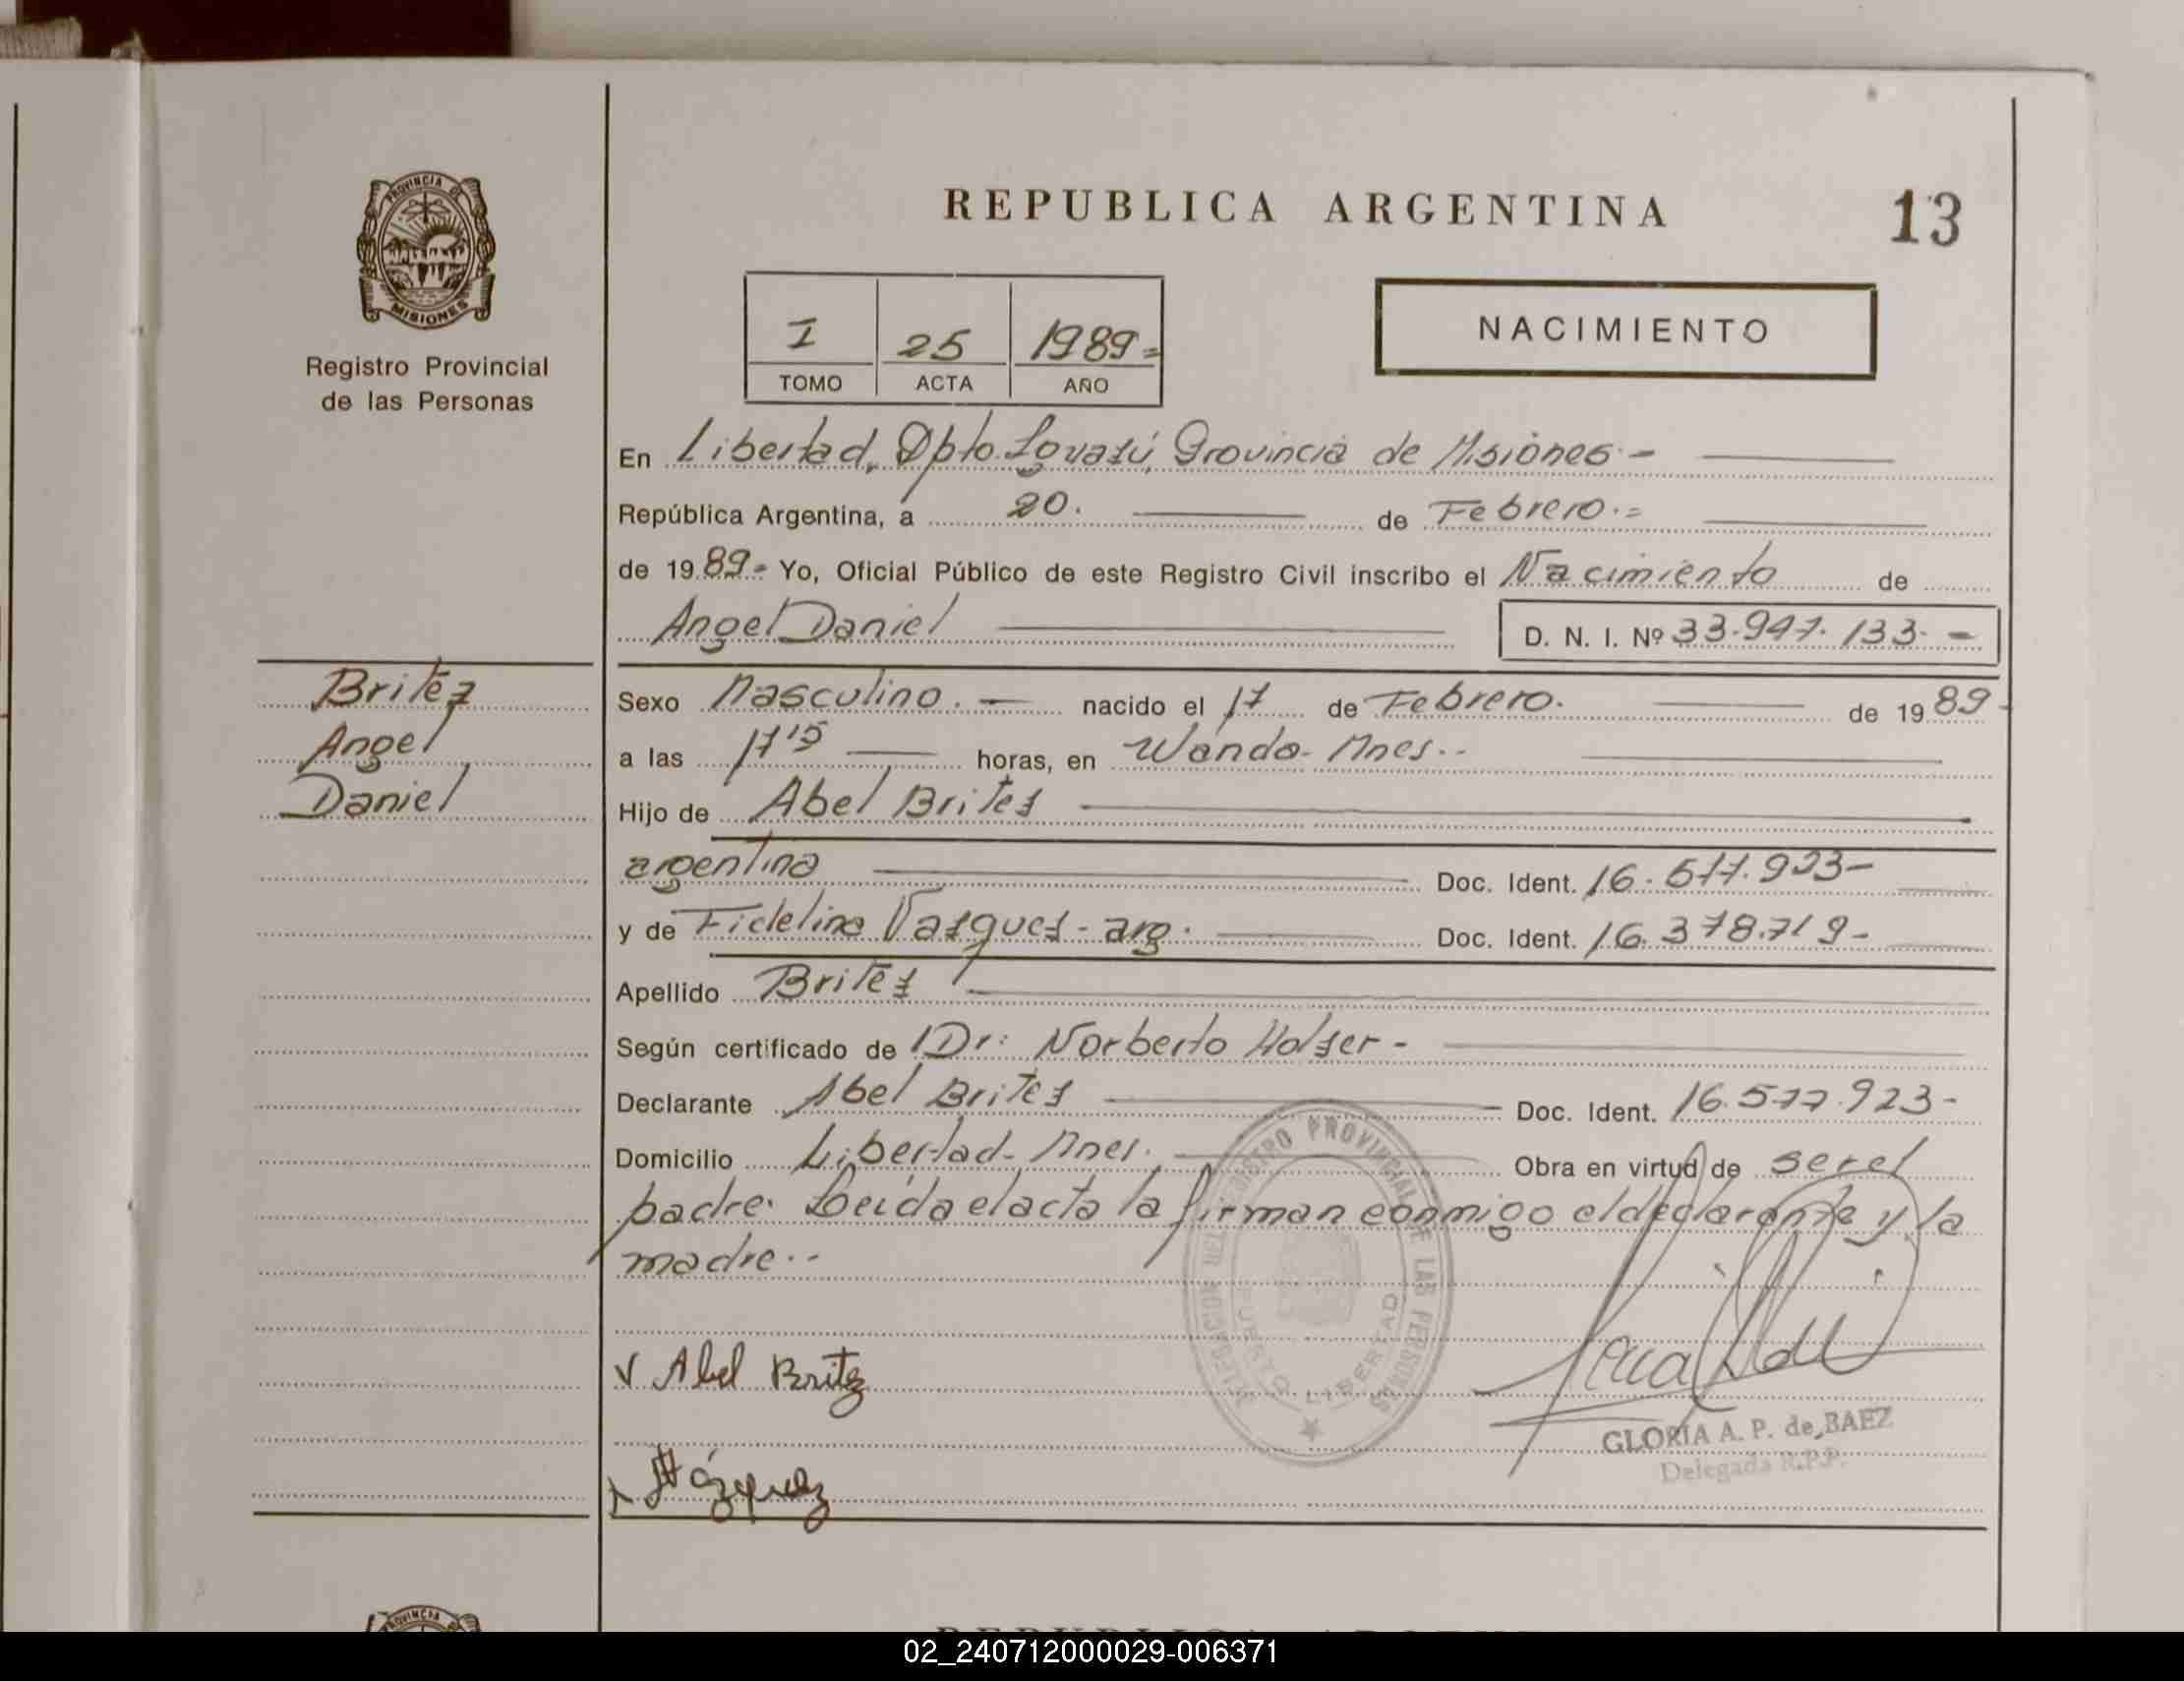 PROVINCIA DE
MISIONES
Registro Provincial
de las Personas
REPUBLICA ARGENTINA
13
I 25 1989=
TOMO ACTA AÑO
NACIMIENTO
En Libertad, Dpto. Iguazú, Provincia de Misiones.-
República Argentina, a 20. de Febrero.=
de 1989= Yo, Oficial Público de este Registro Civil inscribo el Nacimiento de
Angel Daniel
D. N. I. Nº 33.947.133.-
Britez
Angel
Daniel
Sexo Masculino. - nacido el 17 de Febrero. de 1989-
a las 17'5 horas, en Wanda- Mnes..
Hijo de Abel Britez
argentina Doc. Ident. 16.577.923-
y de Fidelina Vazquez- arg. Doc. Ident. 16.378.719-
Apellido Britez
Según certificado de Dr: Norberto Holzer-
Declarante Abel Britez Doc. Ident. 16.577.923-
Domicilio Libertad- Mnes. Obra en virtud de ser el
padre. Leída el acta la firman conmigo el declarante y la
madre..
DELEGACION DEL REGISTRO PROVINCIAL DE LAS PERSONAS
PUERTO LIBERTAD
Abel Britez
Vázquez
GLORIA A. P. de BAEZ
Delegada R.P.P.
PROVINCIA
02_240712000029-006371